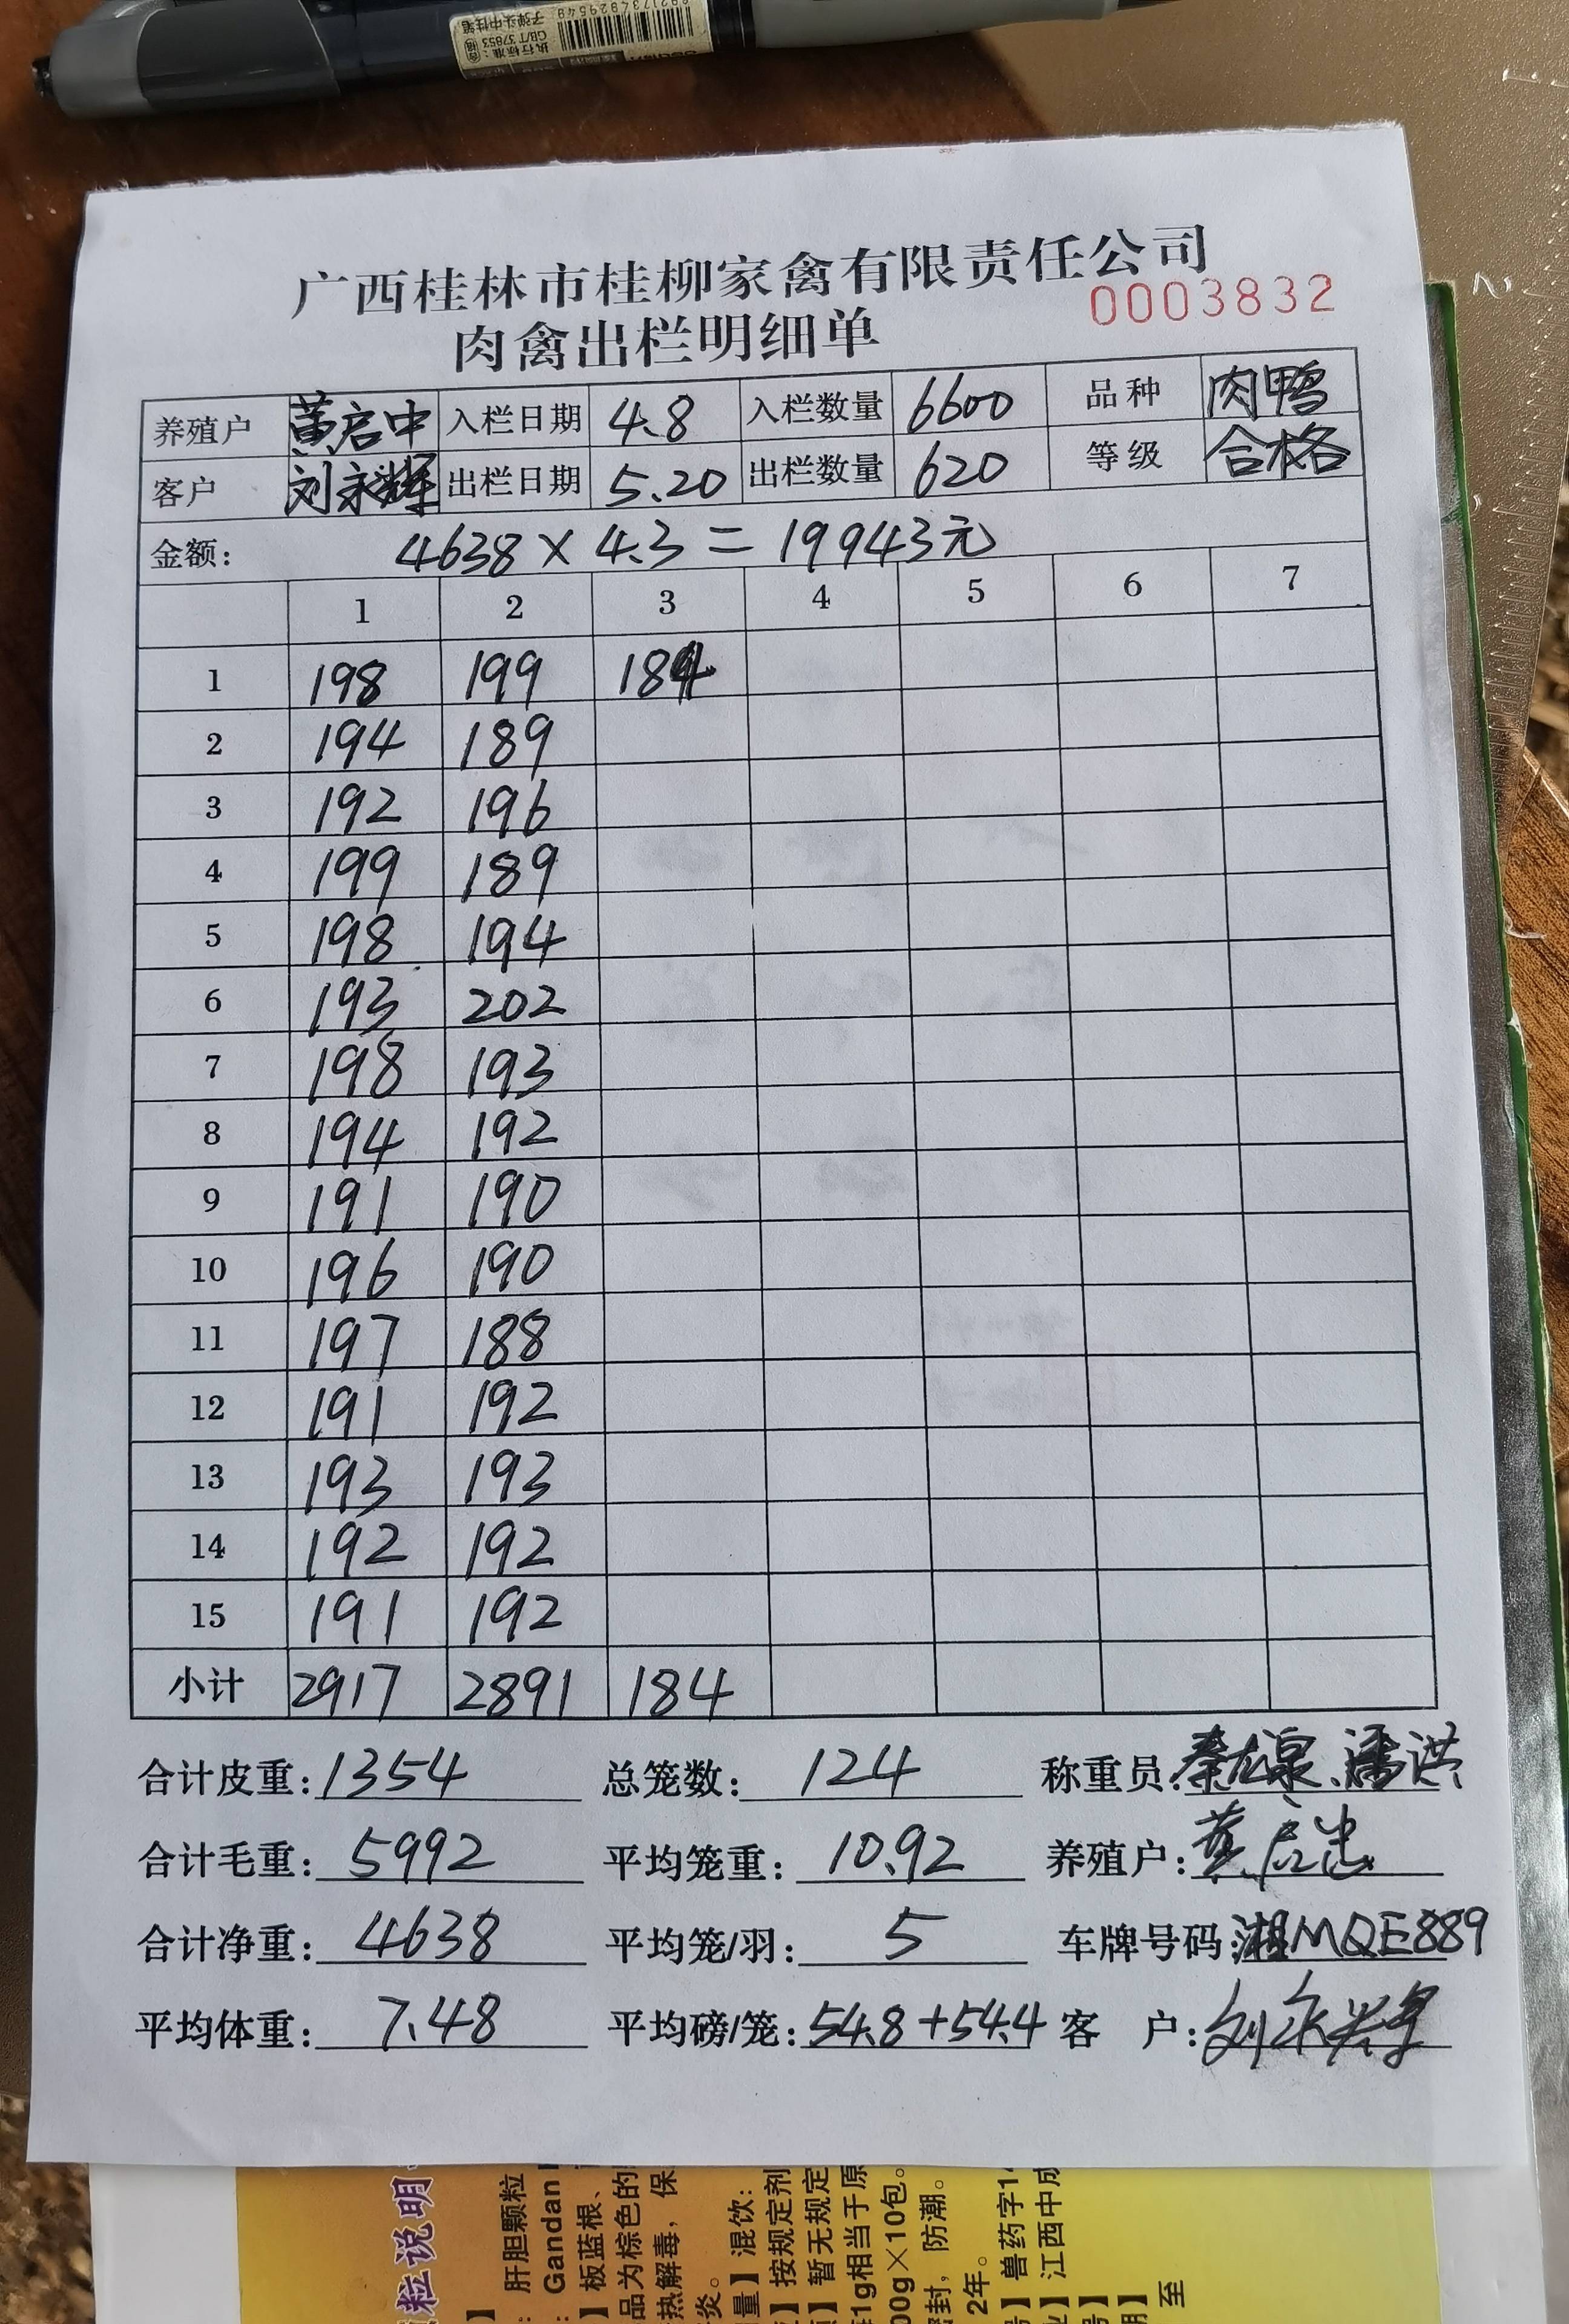 执行标准:
GB/T 37853
子弹头中性笔
广西桂林市桂柳家禽有限责任公司
0003832
肉禽出栏明细单
养殖户 黄启中 入栏日期 4.8 入栏数量 6600 品种 肉鸭
客户 刘永辉 出栏日期 5.20 出栏数量 620 等级 合格
金额: 4638×4.3=19943元
1 2 3 4 5 6 7
1 198 199 184
2 194 189
3 192 196
4 199 189
5 198 194
6 193 202
7 198 193
8 194 192
9 191 190
10 196 190
11 197 188
12 191 192
13 193 193
14 192 192
15 191 192
小计 2917 2891 184
合计皮重: 1354 总笼数: 124 称重员: 秦龙泉、潘洪
合计毛重: 5992 平均笼重: 10.92 养殖户: 黄启忠
合计净重: 4638 平均笼/羽: 5 车牌号码: 湘MQE889
平均体重: 7.48 平均磅/笼: 54.8+54.4 客 户: 刘永辉
粒说明
肝胆颗粒
Gandan
板蓝根、
品为棕色的
热解毒,保
炎。
量】混饮:
】按规定剂
】暂无规定
1g相当于原
00g×10包。
密封,防潮。
2年。
】兽药字14
】江西中成
至